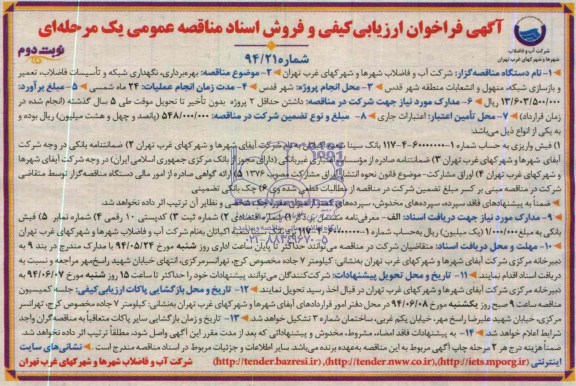 آگهی فراخوان ارزیابی کیفی و فروش اسناد مناقصه عمومی یک مرحله‌ای
شماره ۹۴/۲۱
نوبت دوم
شرکت آب و فاضلاب
شهرها و شهرکهای غرب تهران
۱- نام دستگاه مناقصه‌گزار: شرکت آب و فاضلاب شهرها و شهرکهای غرب تهران ۲- موضوع مناقصه: بهره‌برداری، نگهداری شبکه و تأسیسات فاضلاب، تعمیر
و بازسازی شبکه، منهول و انشعابات منطقه شهر قدس ۳- محل انجام پروژه: شهر قدس ۴- مدت زمان انجام عملیات: ۲۴ ماه شمسی ۵- مبلغ برآورد:
۱۳/۶۰۳/۵۰۰/۰۰۰ ریال ۶- مدارک مورد نیاز جهت شرکت در مناقصه: داشتن حداقل ۲ پروژه بدون تأخیر تا تحویل موقت طی ۵ سال گذشته (انجام شده در
زمان قرارداد) ۷- محل تأمین اعتبار: اعتبارات جاری ۸- مبلغ و نوع تضمین شرکت در مناقصه: ۵۴۸/۰۰۰/۰۰۰ (پانصد و چهل و هشت میلیون) ریال و بوده
به یکی از انواع ذیل می‌باشد:
۱) فیش واریزی به حساب شماره ۱-۴۰۰۰۰۰۰-۴-۱۱۷ بانک سینا شعبه به نام شرکت آبفای شهرها و شهرکهای غرب تهران ۲) ضمانتنامه بانکی در وجه شرکت
آبفای شهرها و شهرکهای غرب تهران ۳) ضمانتنامه صادره از مؤسسات اعتباری غیربانکی (دارای مجوز از بانک مرکزی جمهوری اسلامی ایران) در وجه شرکت آبفای
شهرها و شهرکهای غرب تهران ۴) اوراق مشارکت- موضوع قانون نحوه انتشار اوراق مشارکت مصوب ۱۳۷۶ ۵) ارائه گواهی صادره از امور مالی دستگاه مناقصه‌گزار توسط متقاضی
شرکت در مناقصه مبنی بر کسر مبلغ تضمین شرکت در مناقصه از مطالبات قطعی شده وی ۶) چک بانکی تضمینی
ضمناً به پیشنهادهای فاقد سپرده، سپرده‌های مخدوش، سپرده‌های کمتر از میزان مقرر، چک شخصی و نظایر آن ترتیب اثر داده نخواهد شد.
۹- مدارک مورد نیاز جهت دریافت اسناد: الف- معرفی‌نامه ۱) شماره اقتصادی ۲) شماره ثبت ۳) کدپستی ۱۰ رقمی ۴) شماره نمابر ۵) فیش
بانکی به مبلغ ۱/۰۰۰/۰۰۰ (یک میلیون) ریال به‌حساب شماره بانک سینا شعبه اکباتان به‌نام شرکت آبفای شهرها و شهرکهای غرب تهران
۱۰- مهلت و محل دریافت اسناد: متقاضیان شرکت در مناقصه می‌توانند حداکثر تا پایان ساعت اداری روز شنبه مورخ ۹۴/۰۵/۲۴ با مدارک مندرج در بند ۹ به
دبیرخانه مرکزی شرکت آبفای شهرها و شهرکهای غرب تهران به‌نشانی: کیلومتر ۷ جاده مخصوص کرج، تهرانسر مرکزی، انتهای خیابان شهید راسخ‌مهر مراجعه و نسبت به
دریافت اسناد اقدام نمایند. ۱۱- تاریخ و محل تحویل پیشنهادات: شرکت‌کنندگان می‌توانند پیشنهادات خود را حداکثر تا ساعت ۱۵ روز شنبه مورخ ۹۴/۰۶/۰۷ به
دبیرخانه مرکزی شرکت آبفای شهرها و شهرکهای غرب تهران در قبال اخذ رسید تحویل نمایند. ۱۲- تاریخ و محل بازگشایی پاکات ارزیابی کیفی: جلسه کمیسیون
مناقصه ساعت ۹ صبح روز یکشنبه مورخ ۹۴/۰۶/۰۸ در محل دفتر امور قراردادهای آبفای شهرها و شهرکهای غرب تهران به‌نشانی: کیلومتر ۷ جاده مخصوص کرج، تهرانسر
مرکزی، خیابان شهید علیرضا راسخ مهر، خیابان یکم غربی، ساختمان شماره ۳ تشکیل خواهد شد. ۱۳- تاریخ و زمان بازگشایی سایر پاکات متعاقباً به مناقصه‌گران واجد
شرایط اعلام خواهد شد ۱۴- به پیشنهادات فاقد امضاء، مشروط، مخدوش و پیشنهاداتی که بعد از مدت مقرر این آگهی واصل شود، مطلقاً ترتیب اثر داده نخواهد شد.
ضمناً هزینه درج هر ۲ مرحله چاپ آگهی مربوط به این مناقصه به‌عهده برنده می‌باشد. سایر اطلاعات و جزئیات مربوط در اسناد مناقصه مندرج است. نشانی‌های سایت
اینترنتی (http://iets.mporg.ir)، (http://tender.nww.co.ir)، (http://tender.bazresi.ir) شرکت آب و فاضلاب شهرها و شهرکهای غرب تهران
۰۲۱-۸۸۳۴۹۶۷۰-۵